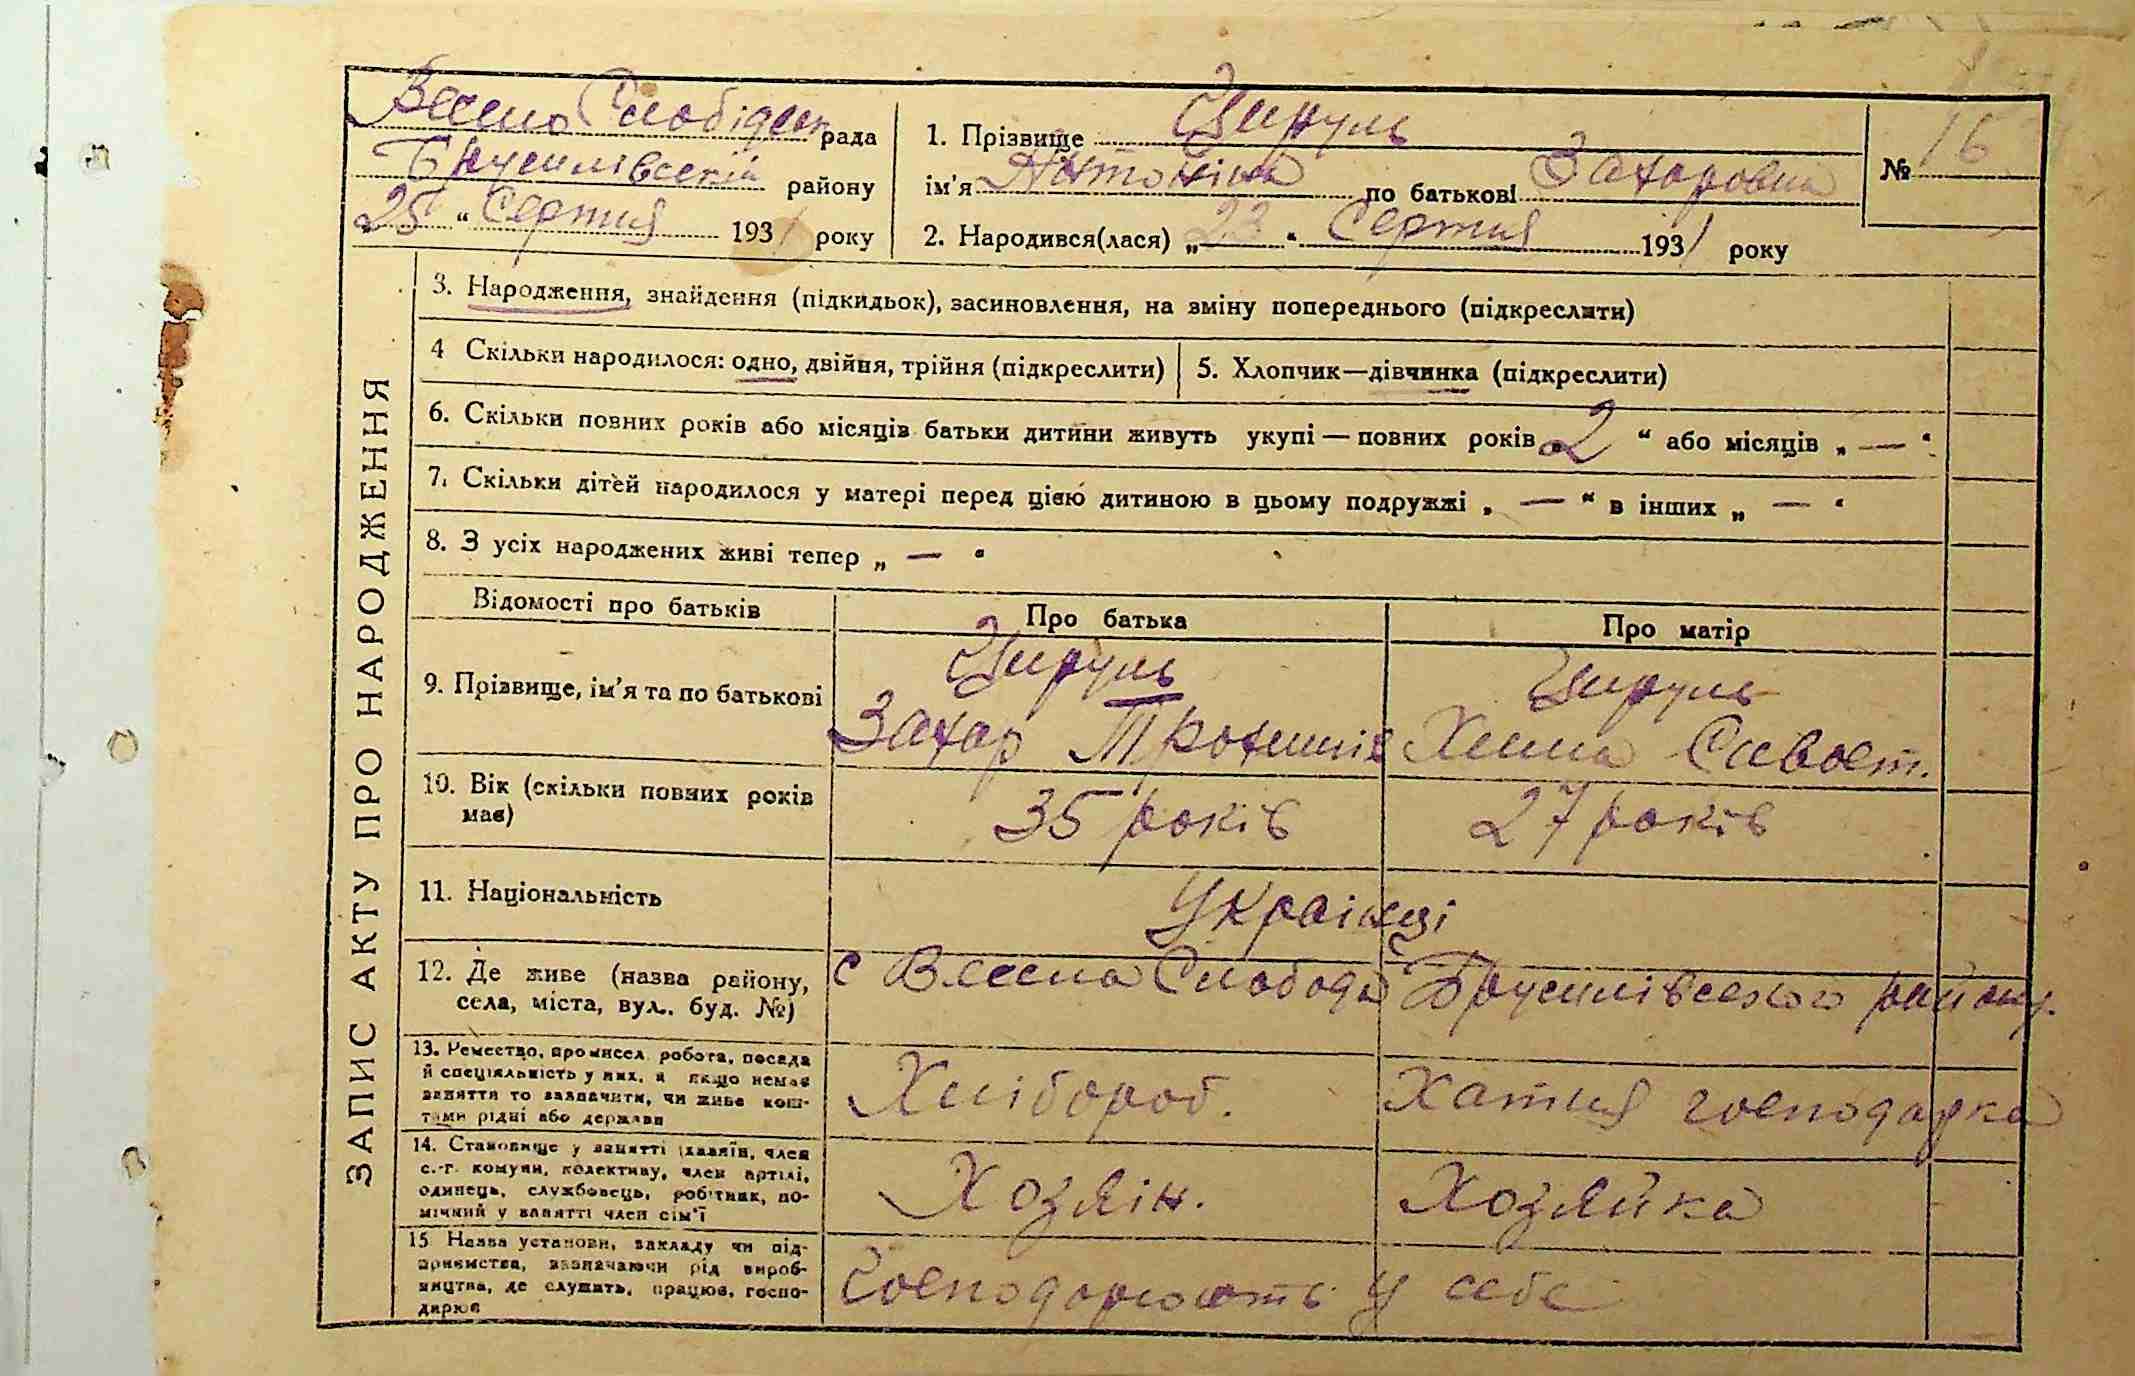 Весело Слобідськ рада
Брусилівській району
25 " Серпня 1931 року
1. Прізвище Цируль
ім'я Антоніна по батькові Захаровна
2. Народився(лася) „ 23 " Серпня 1931 року
№ 16
ЗАПИС АКТУ ПРО НАРОДЖЕННЯ
3. Народження, знайдення (підкидьок), засиновлення, на зміну попереднього (підкреслити)
4 Скільки народилося: одно, двійня, трійня (підкреслити)
5. Хлопчик—дівчинка (підкреслити)
6. Скільки повних років або місяців батьки дитини живуть укупі — повних років „ 2 " або місяців „ — "
7. Скільки дітей народилося у матері перед цією дитиною в цьому подружжі „ — " в інших „ — "
8. З усіх народжених живі тепер „ — "
Відомості про батьків Про батька Про матір
9. Прізвище, ім'я та по батькові
Цируль
Захар Трохимів
Цируль
Савост.
10. Вік (скільки повних років
має)
35 років 27 років
11. Національність
Українці
12. Де живе (назва району,
села, міста, вул., буд. №)
с Весела Слобода Брусилівського району.
13. Ремество, промисел, робота, посада
й спеціяльність у них, а якщо немає
заняття то зазначити, чи живе кош-
тами рідні або держави
Хлібороб. Хатня господарка
14. Становище у занятті (хазяїн, член
с.-г. комуни, колективу, член артілі,
одинець, службовець, робітник, по-
мічний у занятті член сім'ї
Хозяїн. Хозяйка
15 Назва установи, закладу чи під-
приємства, зазначаючи рід вироб-
ництва, де служить, працює, госпо-
дарює
Господарюють у себе